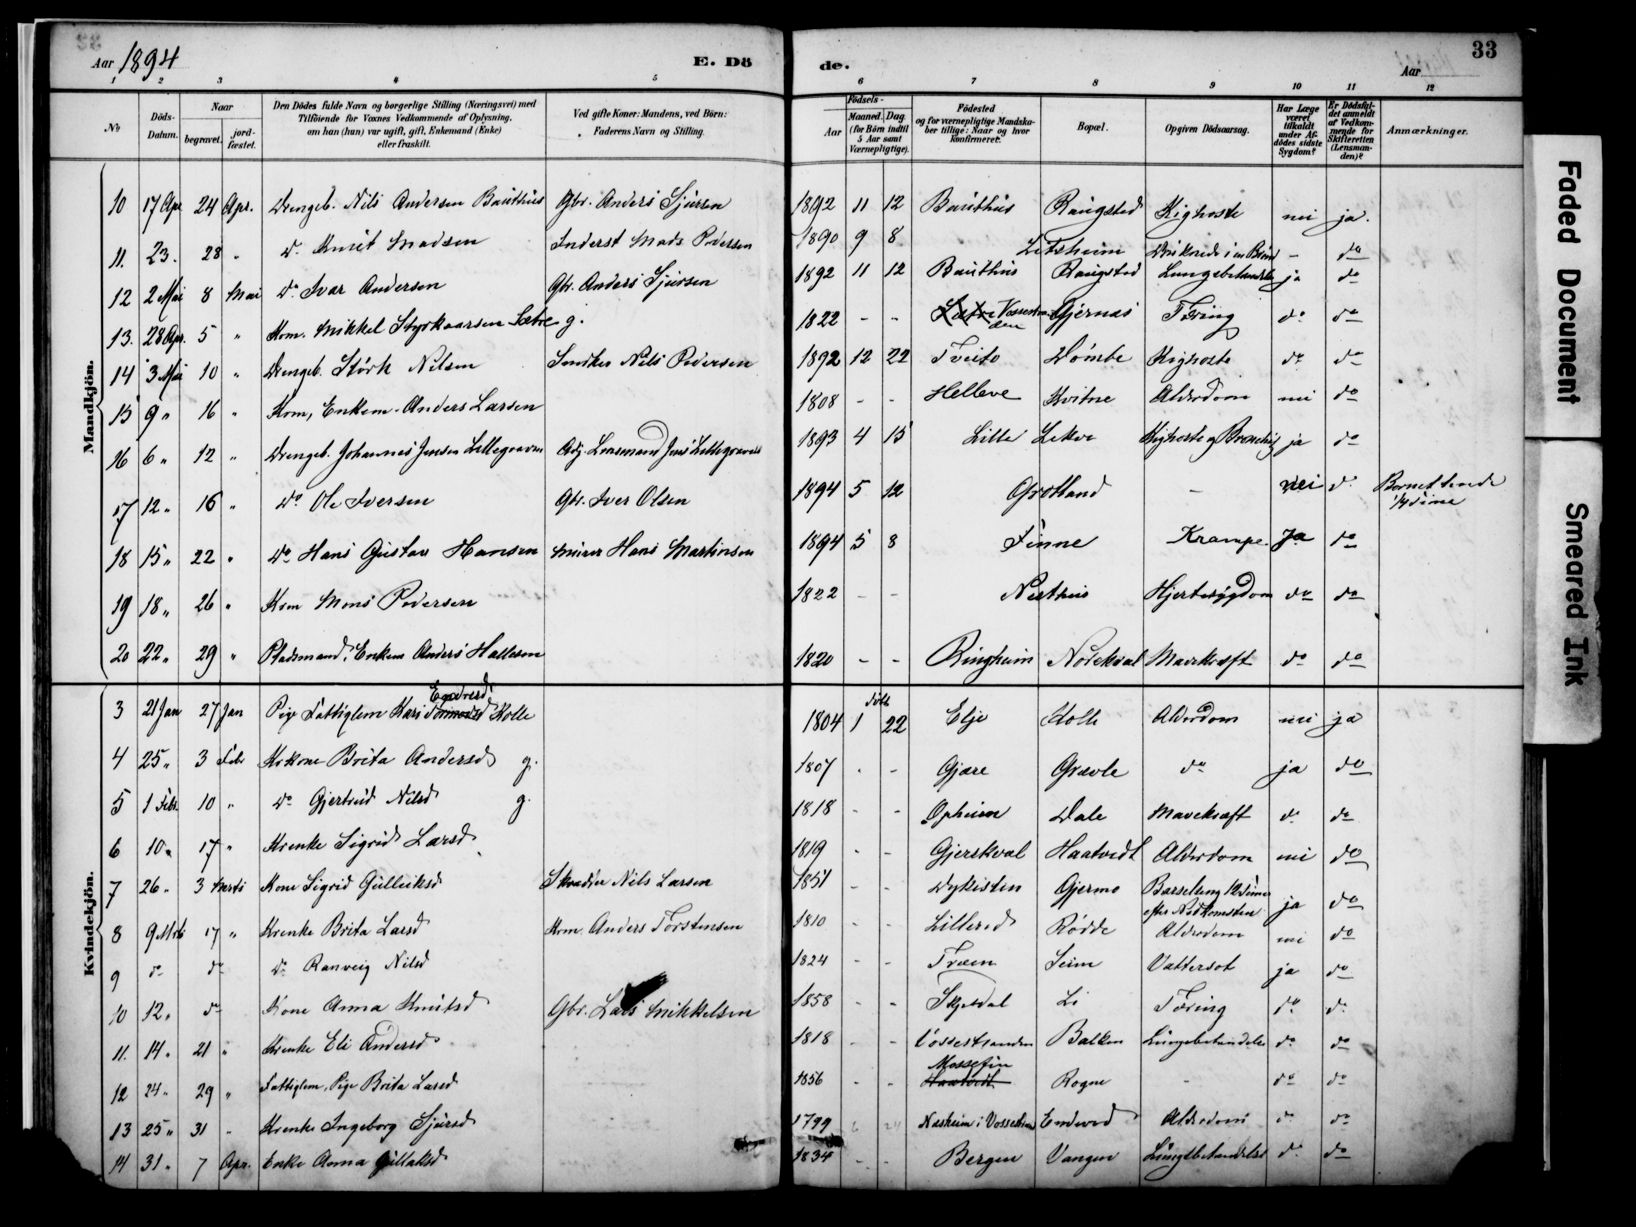 Aar 1894
E. Dö
1 2 3 4 5
No
Döds-Datum.
Naar
begravet.
jord-fæstet.
Den Dödes fulde Navn og borgerlige Stilling (Næringsvei) med
Tilföiende for Voxnes Vedkommende af Oplysning,
om han (hun) var ugift, gift, Enkemand (Enke)
eller fraskilt.
Ved gifte Koner: Mandens, ved Börn:
Faderens Navn og Stilling.
de.
33
Aar
6 7 8 9 10 11 12
Födsels-
Aar
Maaned. Dag.
(for Börn indtil
5 Aar samt
Værnepligtige).
Födested
og for værnepligtige Mandska-
ber tillige: Naar og hvor
konfirmeret.
Bopæl.
Opgiven Dödsaarsag.
Har Læge
været
tilkaldt
under Af-
dödes sidste
Sygdom?
Er Dödsfal-
det anmeldt
af Vedkom-
mende for
Skifteretten
(Lensman-
den)?
Anmærkninger.
Mandkjön.
10 17 Apr 24 Apr. Drengeb. Nils Andersen Bauthus Gbr. Anders Sjursen 1892 11 12 Bauthus Raugstad Kighoste nei ja.
11. 23. 28 " Do Knut Madsen Inderst Mads Pedersen 1890 9 8 - do
12 2 Mai 8 Mai Do Ivar Andersen Gbr. Anders Sjursen 1892 11 12 Bauthus Raugstad Lungebetændelse ja do
13. 28 Apr. 5 " Kom. Mikkel Styrkaarsen Sætre g. 1822 - - Gjernes Tæring do do
14 3 Mai 10 " Drengeb. Størk Nilsen Snedker Nils Pedersen 1892 12 22 Tveito Dömbe Kighoste do do
15 9 " 16 " Kom, Enkem. Anders Larsen 1808 - - Helleve Kvitne Alderdom nei do
16 6 " 12 " Drengeb. Johannes Jensen Lillegraven Adj. Lensmand Jens Lillegraven 1893 4 15 Lille Lekve Kighoste og Bronchit ja do
17 12 " 16 " Do Ole Iversen Gbr. Iver Olsen 1894 5 12 Grotland - nei do Barnet levede
1/4 time
18 15 " 22 " Do Hans Gustav Hansen Murer Hans Martinsen 1894 5 8 Finne Krampe. Ja do
19 18 " 26 " Kom Mons Pedersen 1822 - - Nesthus Hjertesygdom do do
20 22 " 29 " Pladsmand, Enkem Anders Hallesen 1820 - - Ringheim Norekval Mavekræft do do
Kvindekjön.
3 21 Jan 27 Jan Pige Fattiglem Kari Endresd Kolle 1804 1 22 Elje Kolle Alderdom nei ja
4 25 " 3 Febr Kone Brita Andersd g. 1807 - - Gjære Grovle do ja do
5 1 Febr. 10 " Do Gjertrud Nilsd g. 1818 - - Opheim Dale Mavekræft do do
6 10 " 17 " Krenke Sigrid Larsd 1819 - - Gjerskval Haatvedt Alderdom nei do
7 26 " 3 Marts Kone Sigrid Gulleiksd Skræder Nils Larsen 1851 - - Dykesten Gjermo Barselseng 12 timer
efter Nedkomsten ja do
8 9 Mrts 17 " Krenke Brita Larsd Kom. Anders Torstensen 1810 - - Lillered Rødde Alderdom nei do
9 do do Do Ranveig Nilsd 1824 - - Træen Seim Vattersot ja do
10 12 " do Kone Anna Knutsd Gbr. Lars Mikkelsen 1858 - - Skjeldal Li Tæring do do
11. 14 " 21 " Krenke Eli Andersd 1818 - - Vossestranden Balken Lungebetændelse do do
12 24 " 29 " Fattiglem, Pige Brita Larsd 1856 - - Mossefin Rogne - do do
13 25 " 31 - Krenke Ingeborg Sjursd 1799 Næsheim i Vossestran Endeved Alderdom do do
14 31 " 7 Apr. Enke Anna Gullaksd 1834 - - Bergen Vangen Lungebetændelse do do
Faded Document
Smeared Ink